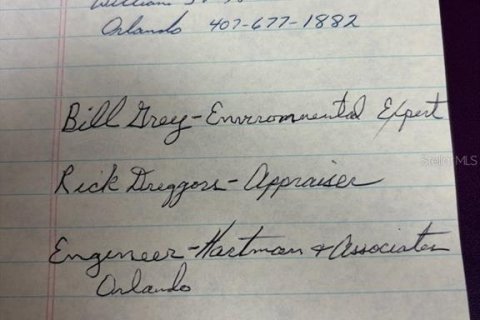 William
Orlando 407-677-1882
Bill Grey - Enviromental Expert
Rick Dreggors - Appraiser
Engineer - Hartman & Associates
Orlando
Stellar MLS